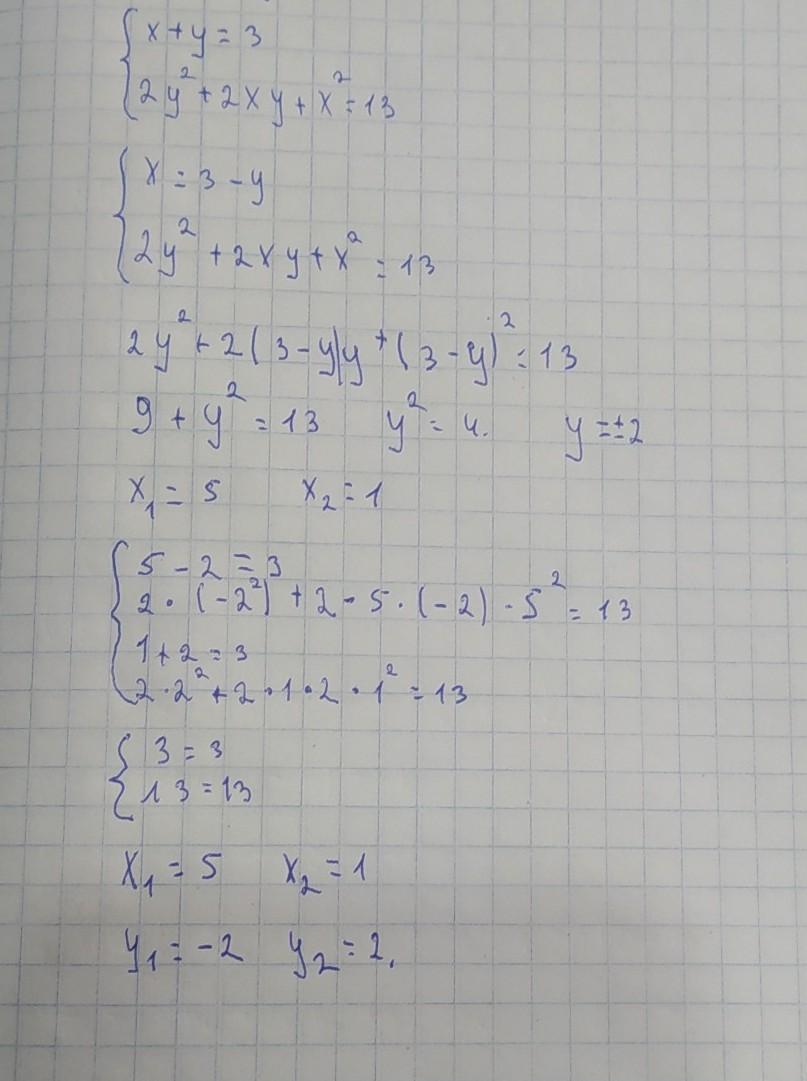 x + y = 3
2y² + 2xy + x² = 13
x = 3 - y
2y² + 2xy + x² = 13
2y² + 2(3 - y)y + (3 - y)² = 13
9 + y² = 13 y² = 4. y = ±2
x₁ = 5 x₂ = 1
5 - 2 = 3
2 · (-2²) + 2 · 5 · (-2) · 5² = 13
1 + 2 = 3
2 · 2² + 2 · 1 · 2 · 1² = 13
3 = 3
13 = 13
x₁ = 5 x₂ = 1
y₁ = -2 y₂ = 2.